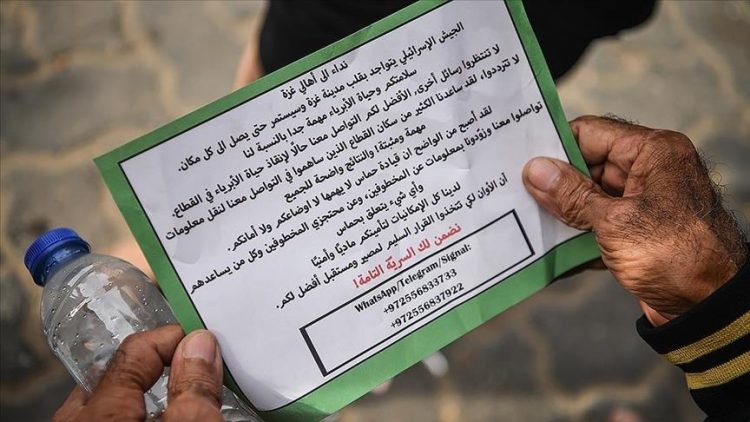 نداء ال أهالي غزة
الجيش الإسرائيلي يتواجد بقلب مدينة غزة وسيستمر حتى يصل ال كل مكان.
سلامتكم وحياة الأبرياء مهمة جدا بالنسبة لنا
لا تنتظروا رسائل أخرى، الأفضل لكم التواصل معنا حالًا لإنقاذ حياة الأبرياء في القطاع.
لا تترددوا، لقد ساعدنا الكثير من سكان القطاع الذين ساهموا في التواصل معنا لنقل معلومات
مهمة ومثبتة! والنتائج واضحة للجميع
لقد أصبح من الواضح ان قيادة حماس لا يهمها لا اوضاعكم ولا أمانكم.
تواصلوا معنا وزودونا بمعلومات عن المخطوفين، وعن محتجزي المخطوفين وكل من يساعدهم
وأي شيء يتعلق بحماس
لدينا كل الإمكانيات لتأمينكم ماديًا وأمنيًا
آن الأوان لكي تتخذوا القرار السليم لمصير ومستقبل أفضل لكم.
نضمن لك السريّة التامة!
WhatsApp/Telegram/Signal:
+972556833733
+972556837922